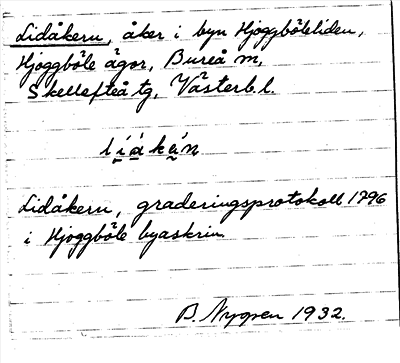 Lidåkern, åker i byn Hjoggböleliden,
Hjoggböle ägor, Bureå m,
Skellefteå tg, Västerb.l.
líákä́n
Lidåkern, graderingsprotokoll 1796
i Hjoggböle byaskrin
B. Nygren 1932.